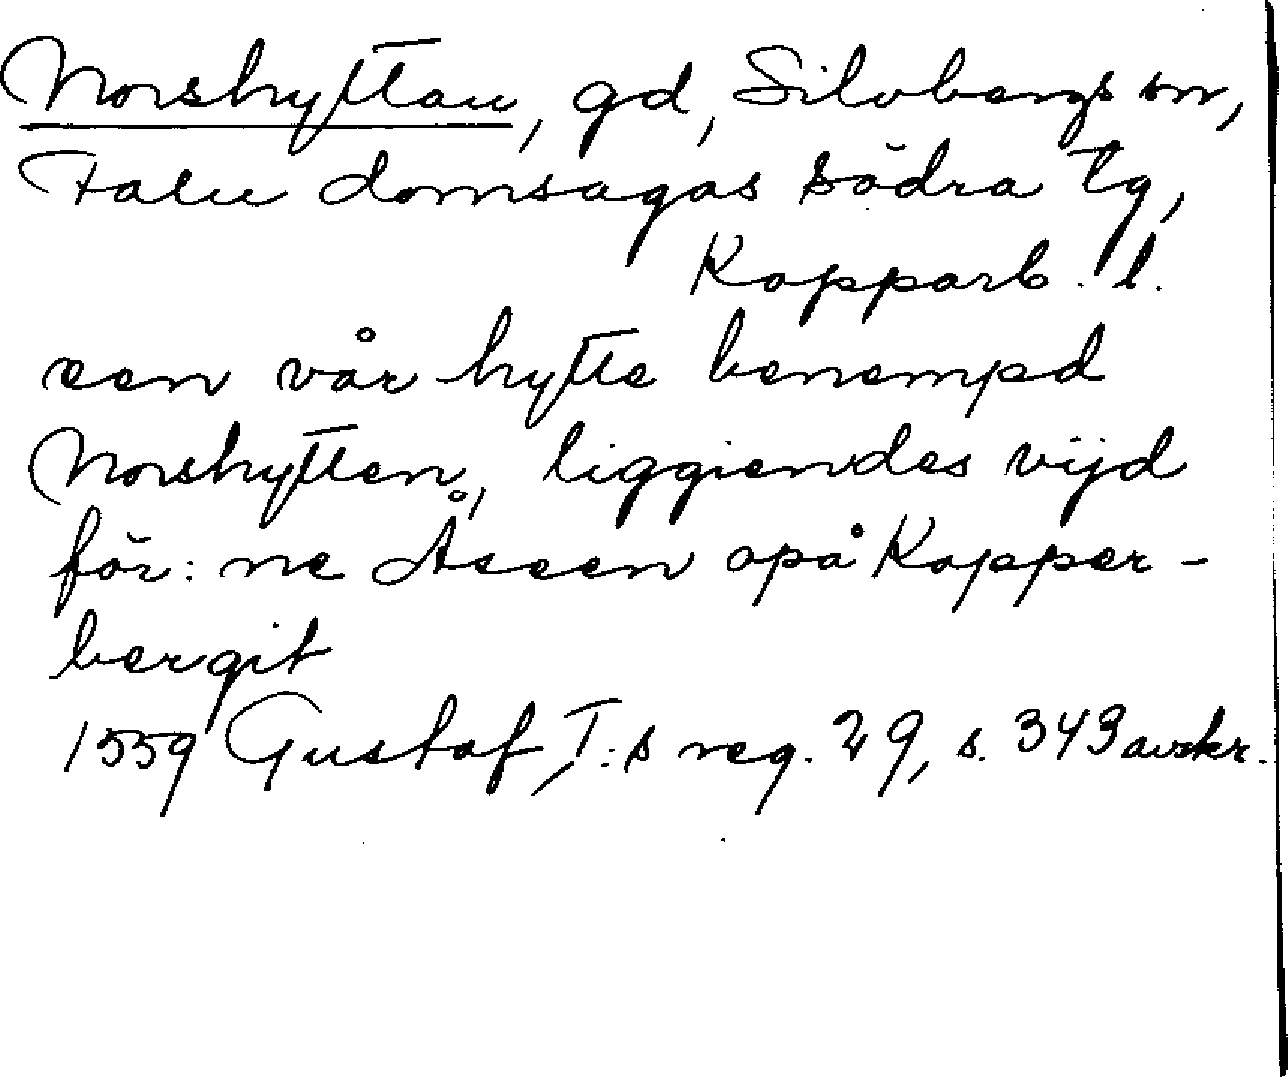 Norshyttan, gd, Silvbergs sn,
Falu domsagas södra tg,
Kopparb. l.
een vår hytte benempd
Norshytten, liggiendes vijd
för: ne Åseen opå Kopper-
bergit
1559 Gustaf I:s reg. 29, s. 343 avskr.